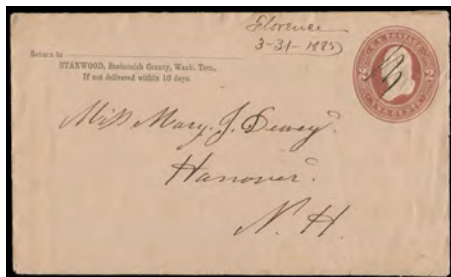 Florence
3-31-1885
U.S. POSTAGE
TWO CENTS
Return to
STANWOOD, Snohomish County, Wash. Terr.
If not delivered within 10 days.
Miss Mary J. Dewey.
Hanover.
N. H.